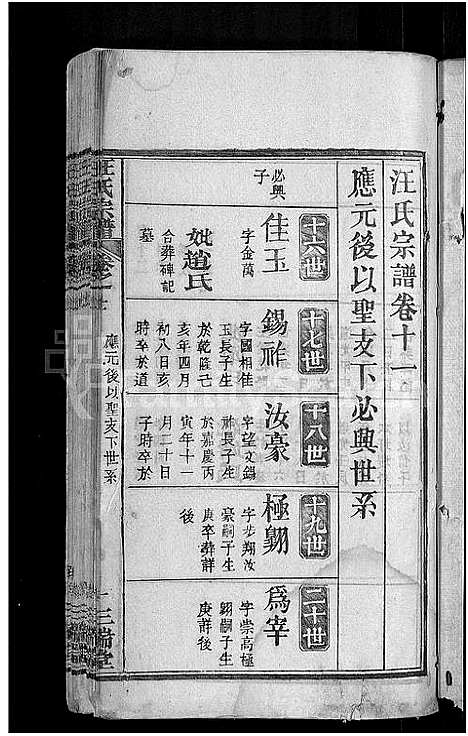 汪氏宗譜卷十一
應元後以聖支下必興世系
十六世
必興
子
佳玉
字金萬
妣趙氏
合葬碑記
墓
十七世
錫祚
字國相佳
玉長子生
於乾隆己
亥年四月
初八日亥
時卒於道
十八世
汝豪
字望文錫
祚長子生
於嘉慶丙
寅年十一
月二十日
子時卒於
十九世
極翺
字步翔汝
豪嗣子生
庚卒葬詳
後
二十世
為宰
字崇高極
翺嗣子生
庚詳後
汪氏宗譜
應元後以聖支下世系
三瑞堂